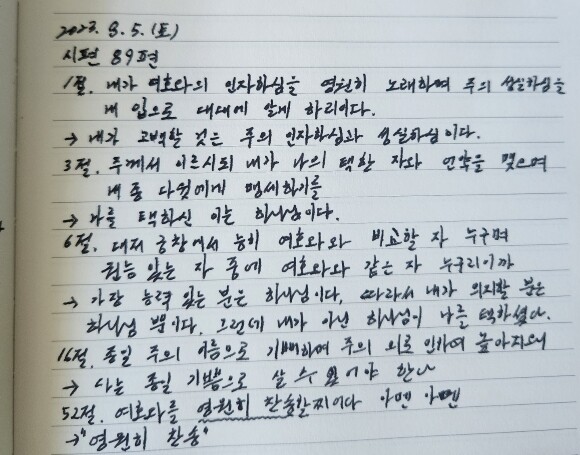 2023. 8. 5. (토)
시편 89편
1절. 내가 여호와의 인자하심을 영원히 노래하며 주의 성실하심을
내 입으로 대대에 알게 하리이다.
→ 내가 고백할 것은 주의 인자하심과 성실하심이다.
3절. 주께서 이르시되 내가 나의 택한 자와 언약을 맺으며
내 종 다윗에게 맹세하기를
→ 나를 택하신 이는 하나님이다.
6절. 대저 궁창에서 능히 여호와와 비교할 자 누구며
권능 있는 자 중에 여호와와 같은 자 누구리이까
→ 가장 능력 있는 분은 하나님이다. 따라서 내가 의지할 분은
하나님 뿐이다. 그런데 내가 아닌 하나님이 나를 택하셨다.
16절. 종일 주의 이름으로 기뻐하며 주의 의로 인하여 높아지오니
→ 나는 종일 기쁨으로 살 수 있어야 한다
52절. 여호와를 영원히 찬송할찌어다 아멘 아멘
→ "영원히 찬송"